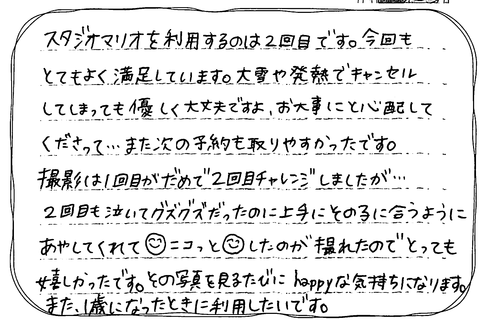 スタジオマリオを利用するのは2回目です。今回も
とてもよく満足しています。大雪や発熱でキャンセル
してしまっても優しく大丈夫ですよ、お大事にと心配して
くださって…また次の予約も取りやすかったです。
撮影は1回目がだめで2回目チャレンジしましたが…
2回目も泣いてグズグズだったのに上手にその子に合うように
あやしてくれて☺ニコっと☺したのが撮れたのでとっても
嬉しかったです。その写真を見るたびにhappyな気持ちになります。
また、1歳になったときに利用したいです。